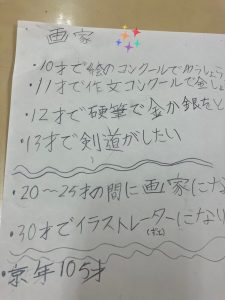 画家
・10才で絵のコンクールでゆうしょう
・11才で作文コンクールで金しょ
・12才で硬筆で金か銀をと
・13才で剣道がしたい
・20〜25才の間に画家にな
・30才でイラストレーターになり
・享年105才